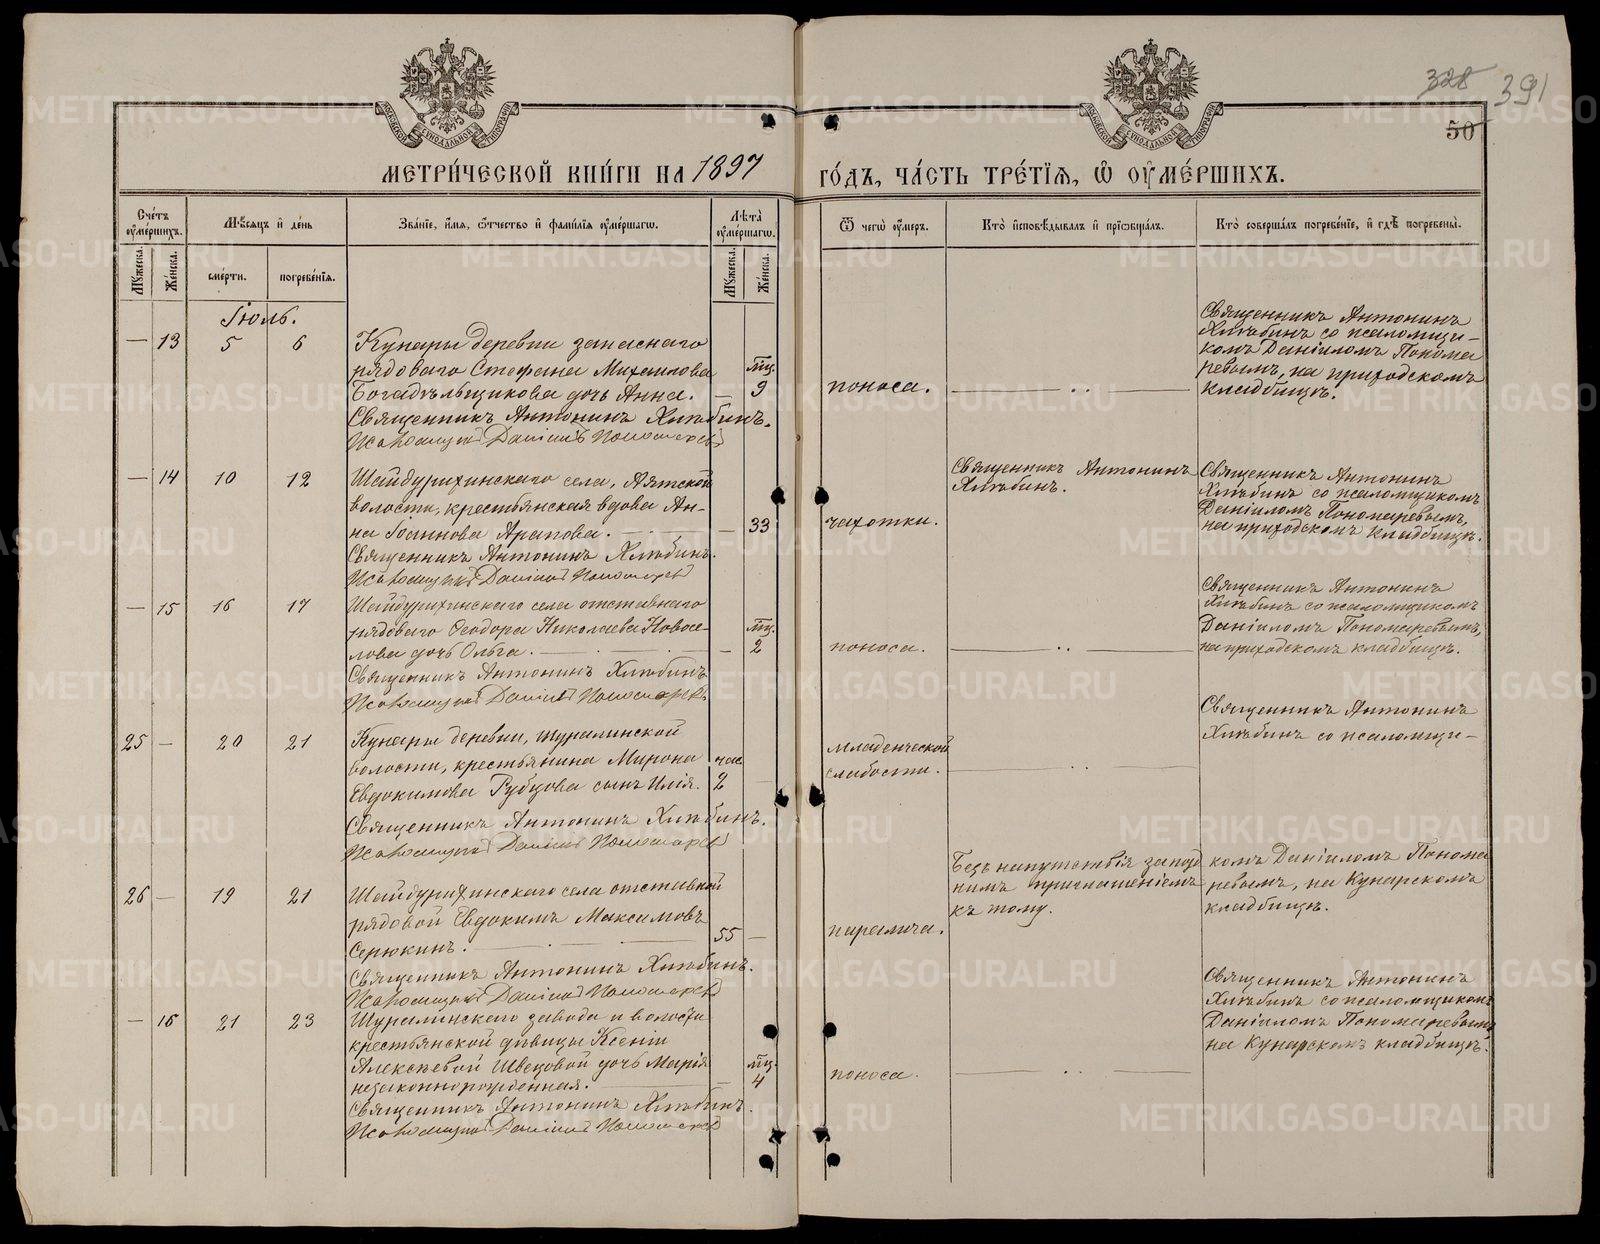 328 391
50
МЕТРИ́ЧЕСКОЙ КНИ́ГИ НА 1897
ГО́ДЪ, ЧА́СТЬ ТРЕ́ТІѦ, Ѿ ОУМЕ́РШИХЪ.
Сче́тъ оуме́ршихъ.
Мꙋ́жеска.
Же́нска.
Мѣ́сяцъ и де́нь
сме́рти.
погребе́нія.
Зва́ніе, и́мя, ѻ́тчество и фами́лія оуме́ршагѡ.
Лѣ́та оуме́ршагѡ.
Мꙋ́жеска.
Же́нска.
Ѿ чегѡ̀ оу́меръ.
Кто̀ исповѣ́дывалъ и прїѡбща́лъ.
Кто̀ соверша́лъ погребе́ніе, и гдѣ̀ погребены̀.
Іюль.
— 13 5 6
Кунары деревни запаснаго
рядоваго Стефана Михаилова
Богадѣльщикова дочь Анна. — мц. 9
Священникъ Антонинъ Хлѣбинъ.
Псаломщикъ Даніилъ Пономаревъ
поноса.
Священникъ Антонинъ
Хлѣбинъ со псаломщи-
комъ Даніиломъ Понома
ревымъ, на приходскомъ
кладбищѣ.
— 14 10 12
Шайдурихинскаго села, Аятской
волости, крестьянская вдова Ан-
на Іоаннова Арапова. — 33
Священникъ Антонинъ Хлѣбинъ.
Псаломщикъ Даніилъ Пономаревъ
чахотки.
Священникъ Антонинъ
Хлѣбинъ.
Священникъ Антонинъ
Хлѣбинъ со псаломщикомъ
Даніиломъ Пономаревымъ,
на приходскомъ кладбищѣ.
— 15 16 17
Шайдурихинскаго села отставнаго
рядоваго Ѳеодора Николаева Новосе-
лова дочь Ольга. — мц. 2
Священникъ Антонинъ Хлѣбинъ
Псаломщикъ Даніилъ Пономаревъ
поноса.
Священникъ Антонинъ
Хлѣбинъ со псаломщикомъ
Даніиломъ Пономаревымъ,
на приходскомъ кладбищѣ.
25 — 20 21
Кунары деревни, Шуралинской
волости, крестьянина Мирона
Евдокимова Рубцова сынъ Илія. час. 2
Священникъ Антонинъ Хлѣбинъ.
Псаломщикъ Даніилъ Пономаревъ
младенческой
слабости.
Священникъ Антонинъ
Хлѣбинъ со псаломщи-
комъ Даніиломъ Понома
ревымъ, на Кунарскомъ
кладбищѣ.
26 — 19 21
Шайдурихинскаго села отставной
рядовой Евдокимъ Максимовъ
Серюкинъ. 55 —
Священникъ Антонинъ Хлѣбинъ.
Псаломщикъ Даніилъ Пономаревъ
паралича.
Безъ напутствія за позд
нимъ приглашеніемъ
къ тому.
Священникъ Антонинъ
Хлѣбинъ со псаломщикомъ
Даніиломъ Пономаревымъ
на Кунарскомъ кладбищѣ.
— 16 21 23
Шуралинскаго завода и волости
крестьянской дѣвицы Ксеніи
Алексѣевой Швецовой дочь Марія
незаконнорожденная. — мц. 4
Священникъ Антонинъ Хлѣбинъ.
Псаломщикъ Даніилъ Пономаревъ
поноса.
METRIKI.GASO-URAL.RU